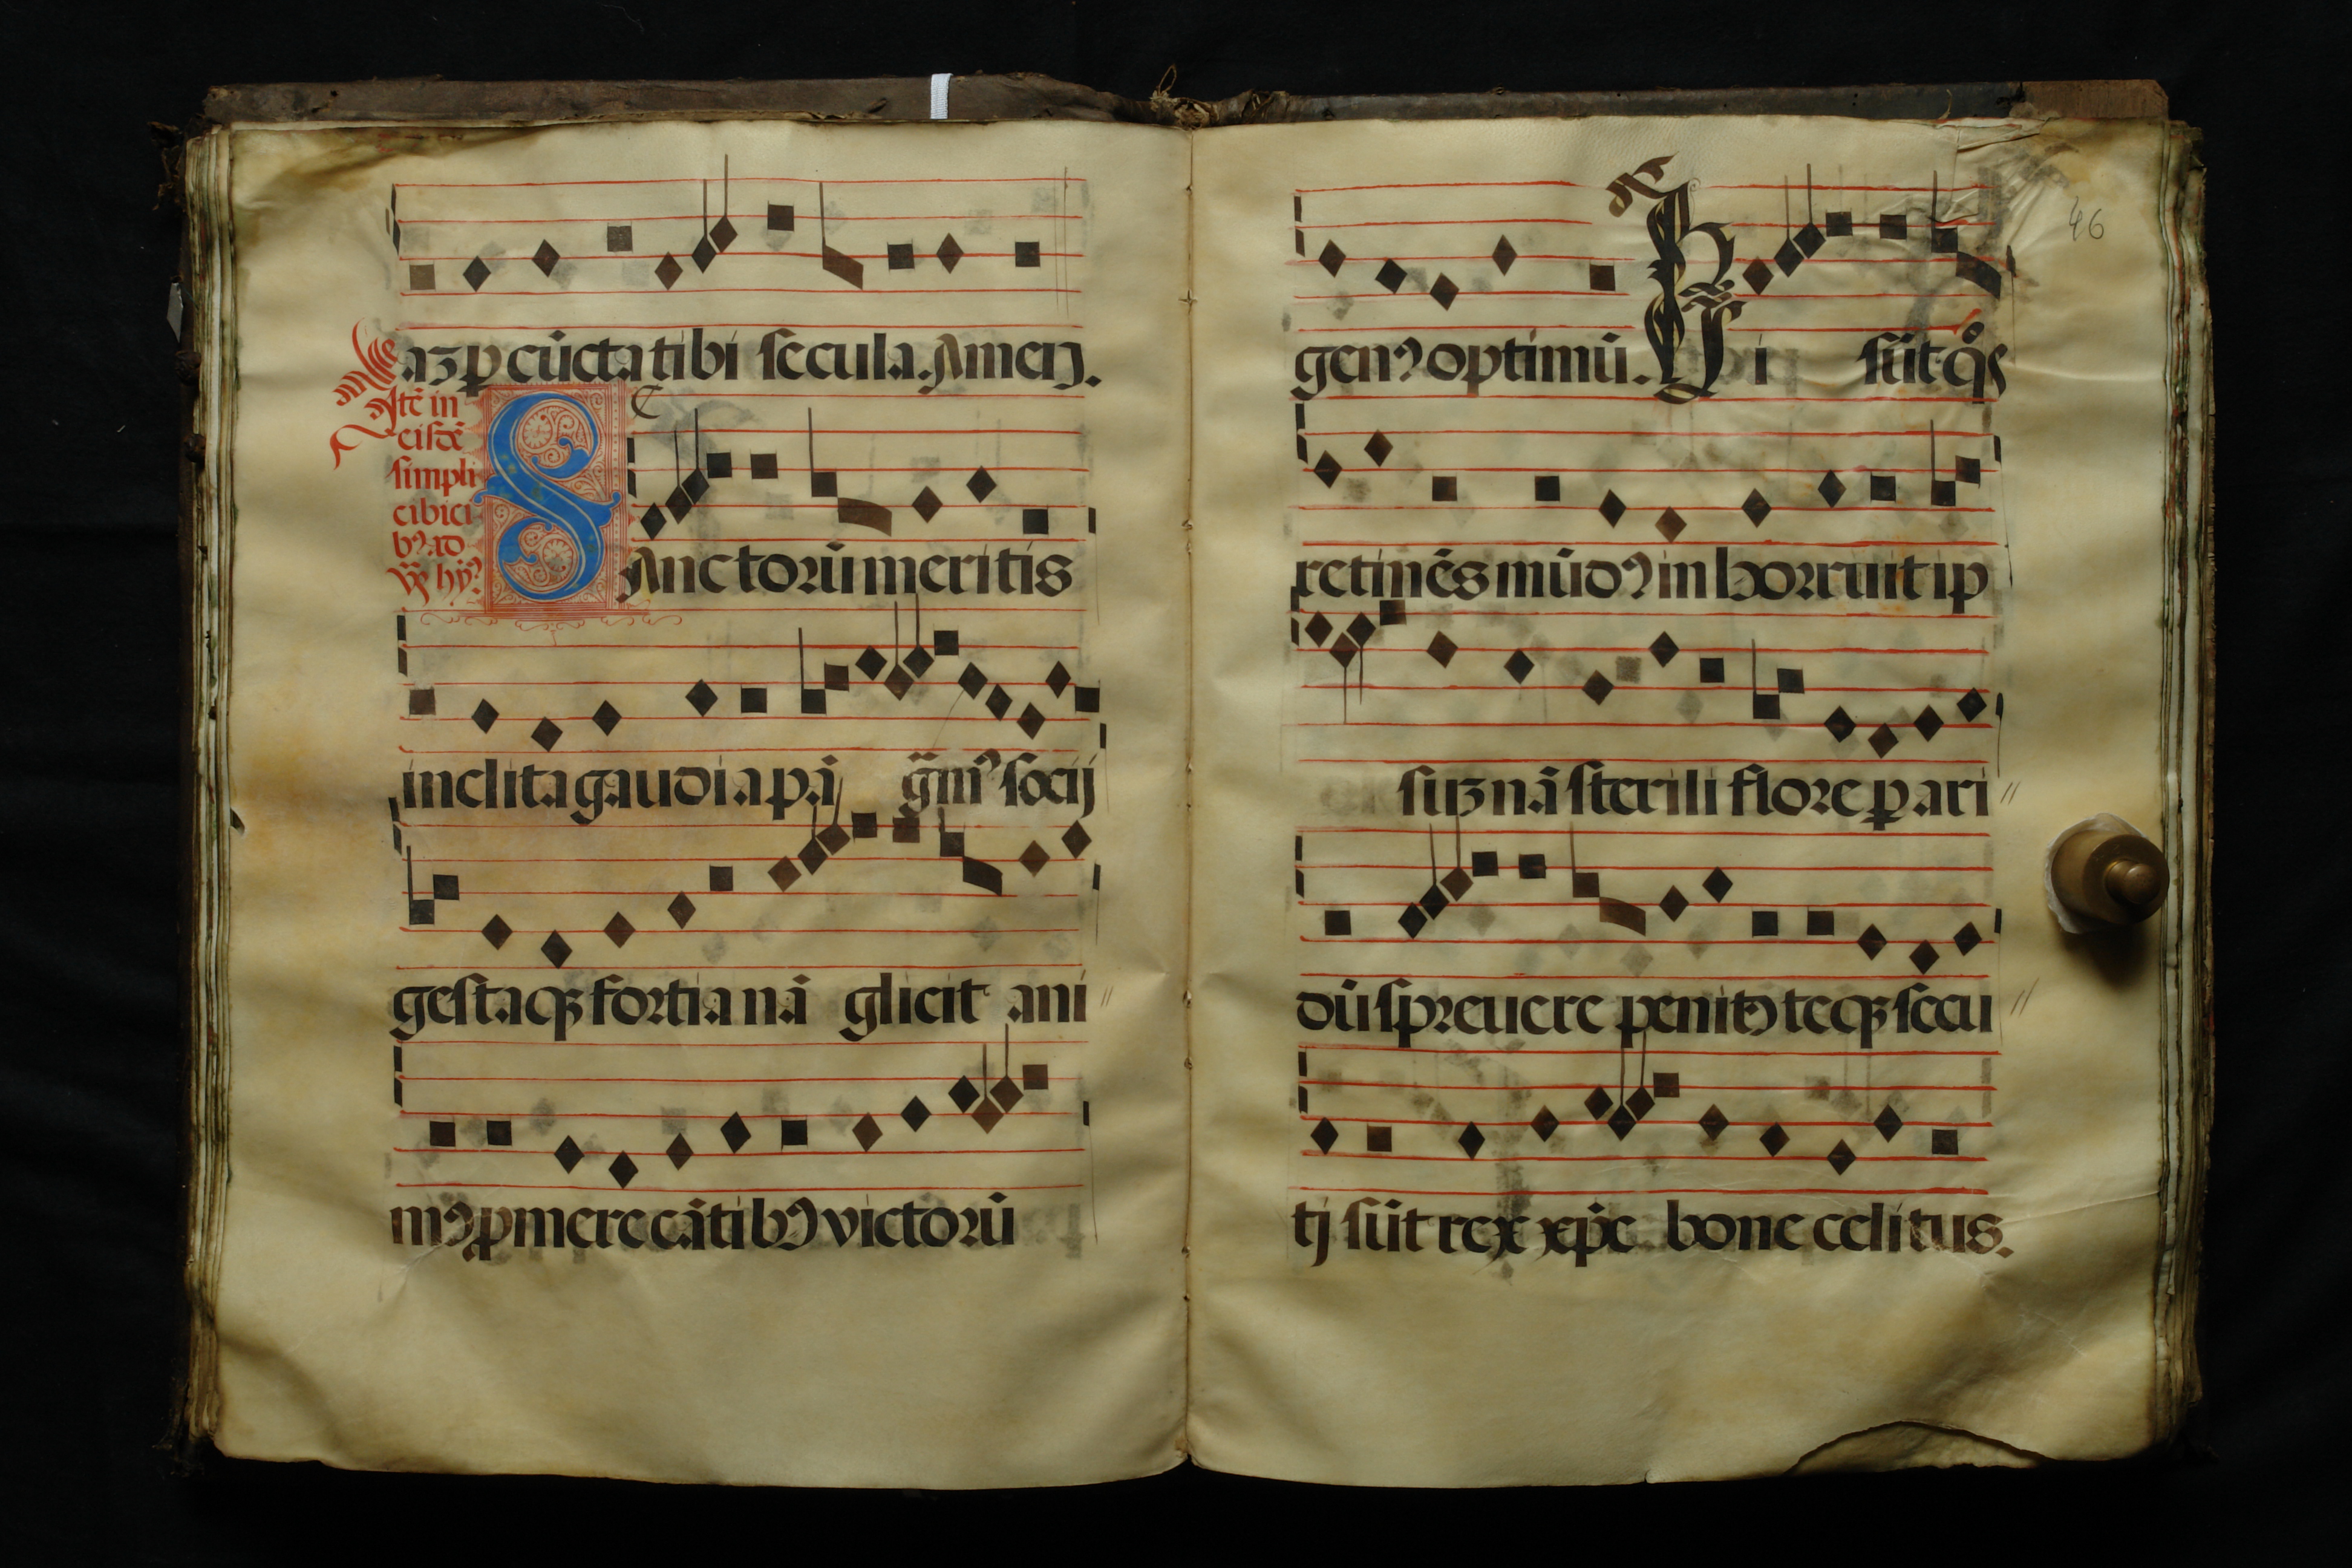 az p cūcta tibi secula. Amen.
Itē in
eisdē
simpli
cibici
bꝰ ad
vꝑ hȳꝰ
SAnctorū meritis
inclita gaudia pā gmꝰ socij
gestaqꝫ fortia nā gliscit ani //
mꝰ ꝓmere cātibꝰ victorū
46
genꝰ optimū. Hi sūt qͦs
retinēs mūdꝰ inhorruit ip
suꝫ nā sterili flore ꝑ ari //
dū spreuere penitꝰ teqꝫ secu //
ti sūt rex xp̄e bone celitus.